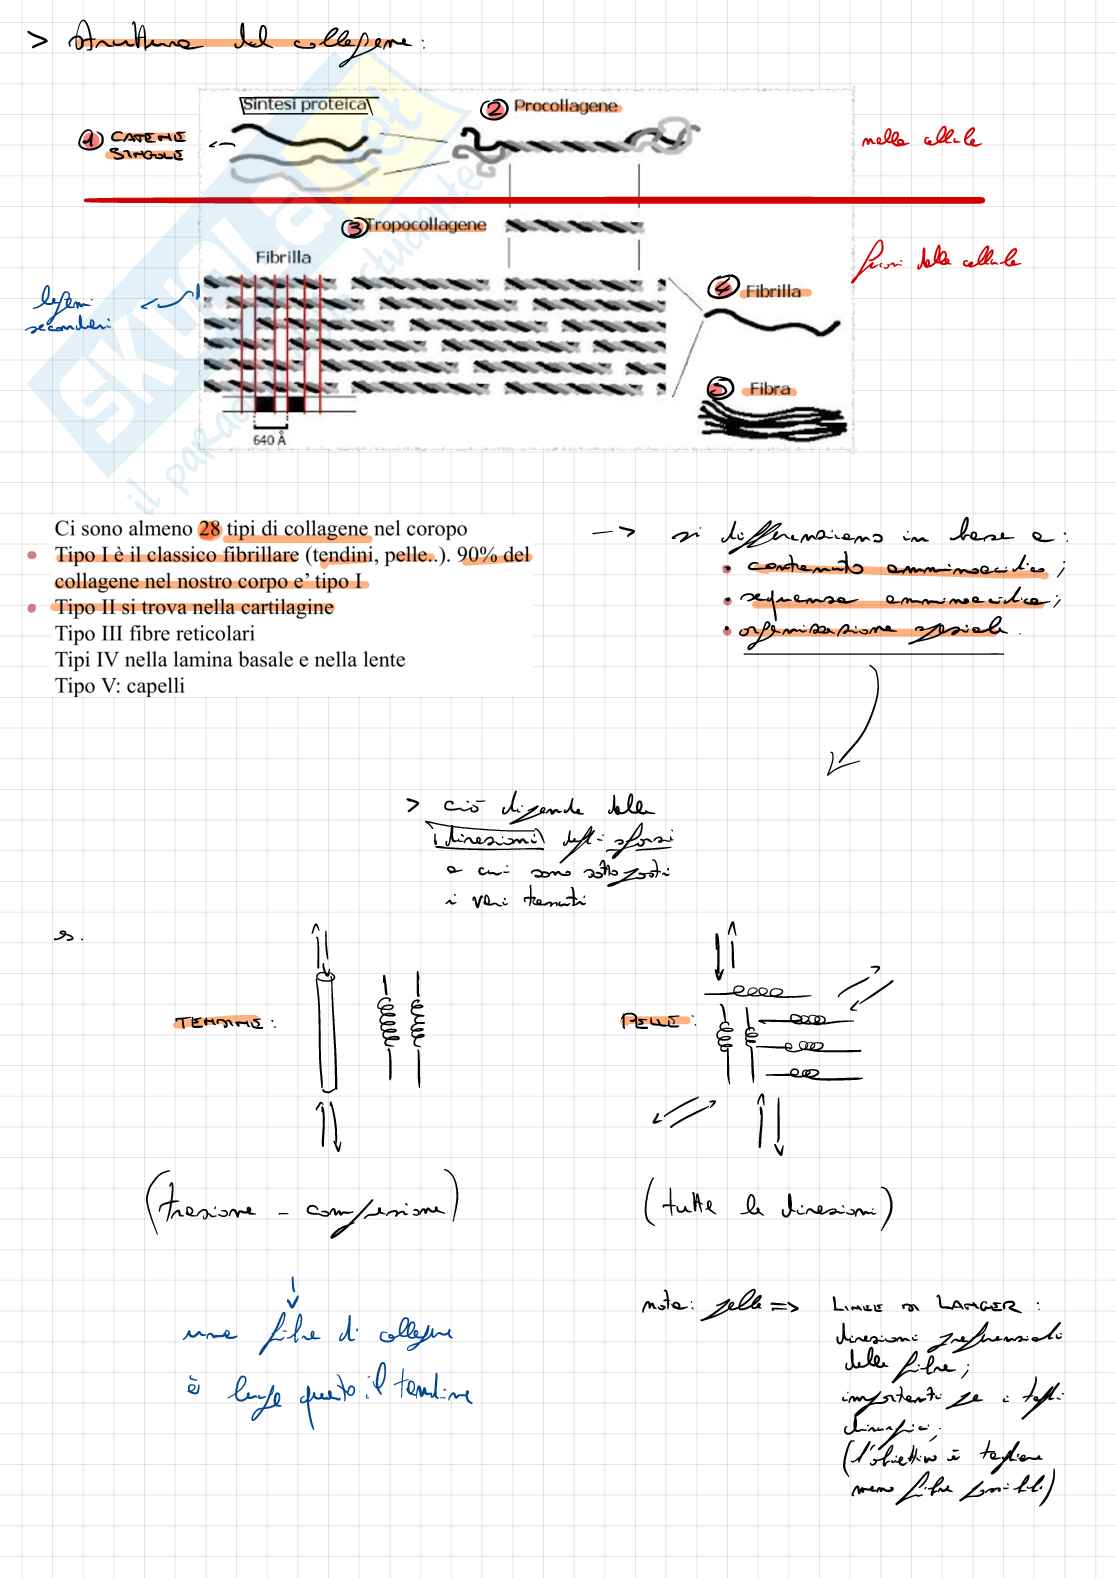 > Struttura del collagene:
Sintesi proteica
2 Procollagene
1 CATENE
SINGOLE
nella cellula
3 Tropocollagene
fuori dalla cellula
Fibrilla
legami
secondari
4 Fibrilla
5 Fibra
640 Å
SKUOLA.net
Ci sono almeno 28 tipi di collagene nel coropo
• Tipo I è il classico fibrillare (tendini, pelle..). 90% del
collagene nel nostro corpo e' tipo I
• Tipo II si trova nella cartilagine
Tipo III fibre reticolari
Tipi IV nella lamina basale e nella lente
Tipo V: capelli
--> si differenziano in base a:
• contenuto amminoacidico;
• sequenza amminoacidica;
• organizzazione spaziale.
> ciò dipende dalla
direzioni degli sforzi
a cui sono sottoposti
i vari tessuti
es.
TENDINE:
PELLE:
(trazione - compressione)
(tutte le direzioni)
una fibra di collagene
è lunga quanto il tendine
nota: pelle => LINEE DI LANGER:
direzioni preferenziali
delle fibre;
importanti per i tagli
chirurgici;
(l'obiettivo è tagliare
meno fibre possibili)